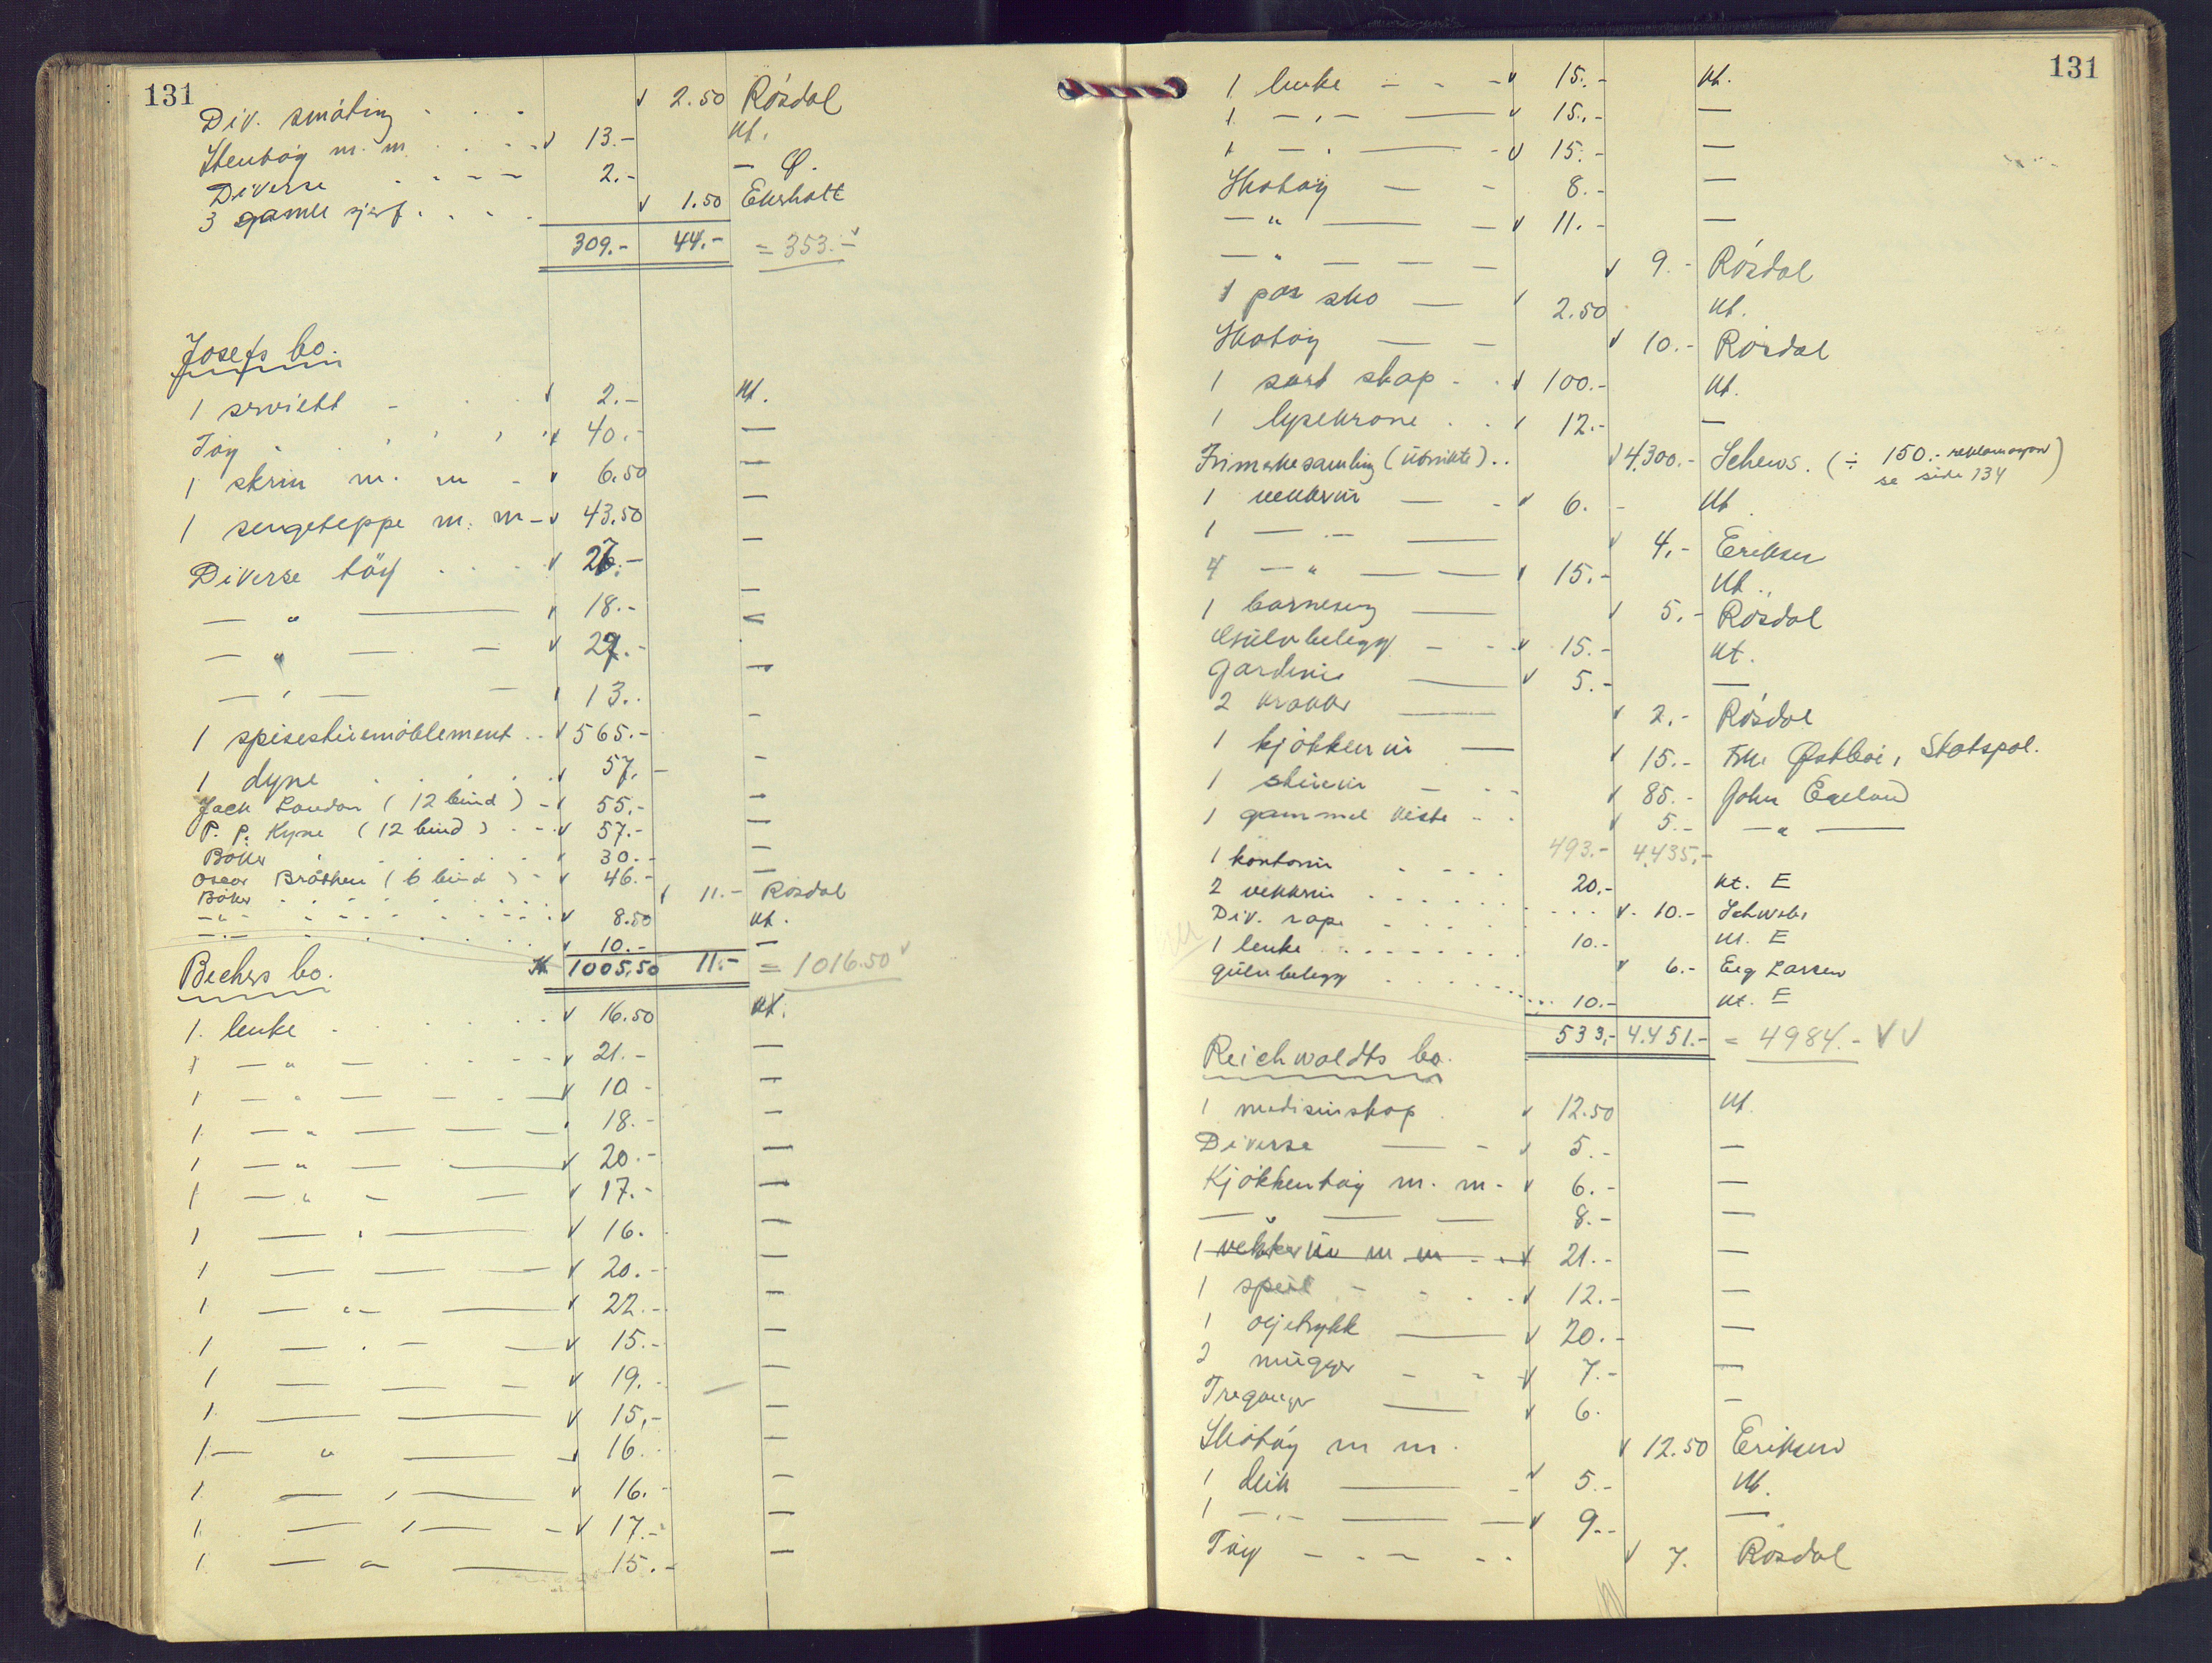 131
Div. småting - - - 2.50 Rösdal
Stentöy m. m. - - - 13.- kt.
Diverse - - - - 2.- — Ø.
3 gamle sjerf . . . . 1.50 Ekerholt
309.- 44.- = 353.-
Josefs bo.
1 serviett - 2.- kt.
Töy 40.- —
1 skrin m. m - 6.50 —
1 sengeteppe m. m - 43.50 —
Diverse töy . . . 27.- —
— " —— 18.- —
— " — — 27.- —
— " — — 13.- —
1 spisestuemöblement . . 565.- —
1 dyne . . . . 57.- —
Jack London (12 bind) - 55.- —
P. P. Kyne (12 bind) . - 57.- —
Böker . . . . . 30.- —
Oscar Bråthen (6 bind) - 46.- —
Böker - - - - - 11.- Rösdal
- " - - - - - - 8.50 kt.
- " - . . . . 10.- —
Kr 1005.50 11.- = 1016.50
Bechers bo.
1. lenke . . . . . 16.50 kt.
1 — " — - - - 21.- —
1 — " — — - — 10 - —
1 — " — — — 18.- —
1 — " — —— 20.- —
1 — " — — 17.- —
1 —— " —— 16. —
1 — — — — 20.- —
1 — " — —— 22.- —
1 — . — — 15.- —
1 — — — 19.- —
1 —— —— 15.- —
1 — " —— 16. —
1 — " —— 16.- —
1 — " — - 17.- —
1 — " —— 15.- —
131
1 lenke - - - 15.- kt.
1 — " — —— 15.- —
1 — " —— - 15.- —
Skotöy — - 8.- —
— " —— — 11.- —
— " — — — 9.- Rösdal
1 par sko — 2.50 kt.
Skotöy — — 10.- Rösdal
1 sort skap - . 100.- kt.
1 lysekrone . . 12.- —
Frimerkesamling (utvikte) . . 4.300.- Schews. (÷ 150.- reklamasjon
se side 134)
1 vekkerur — - 6. - kt.
1 — " — —— 4.- Eriksen
4 — " — — 15.- kt.
1 barneseng —— 5.- Rösdal
Gulvbelegg - - 15.- kt.
Gardiner —— 5.- —
2 krakker —— 2.- Rösdal
1 kjökkenur — 15.- Frk. Østbøe, Statspol.
1 stueur — - - 85.- John Egeland
1 gammel kiste - - 5.- — " ——
493.- 4.435.-
1 kontorur . . . . 20.- kt. E
2 vekkerur . . . . . 10.- Schwebs
Div. rape . . . . . 10.- kt. E
1 lenke . . . . . . 6.- Eeg Larsen
gulvbelegg . . . . . 10.- kt. E
533.- 4.451.- = 4984.-
Reichwaldts bo.
1 medisinskap . 12.50 kt.
Diverse —— - 5.- —
Kjökkentöy m. m - 6.- —
— " — — 8.- —
1 vekkerur m. m - . 21.- —
1 speil - - . . 12.- —
1 oljetrykk —— 20.- —
2 mugger - - - 7.- —
Treganger —— 6. —
Skotöy m m. 12.50 Eriksen
1 deik —— - 5.- kt.
1 — " — —— — 9.- —
Töy - - - - - 7. Rösdal